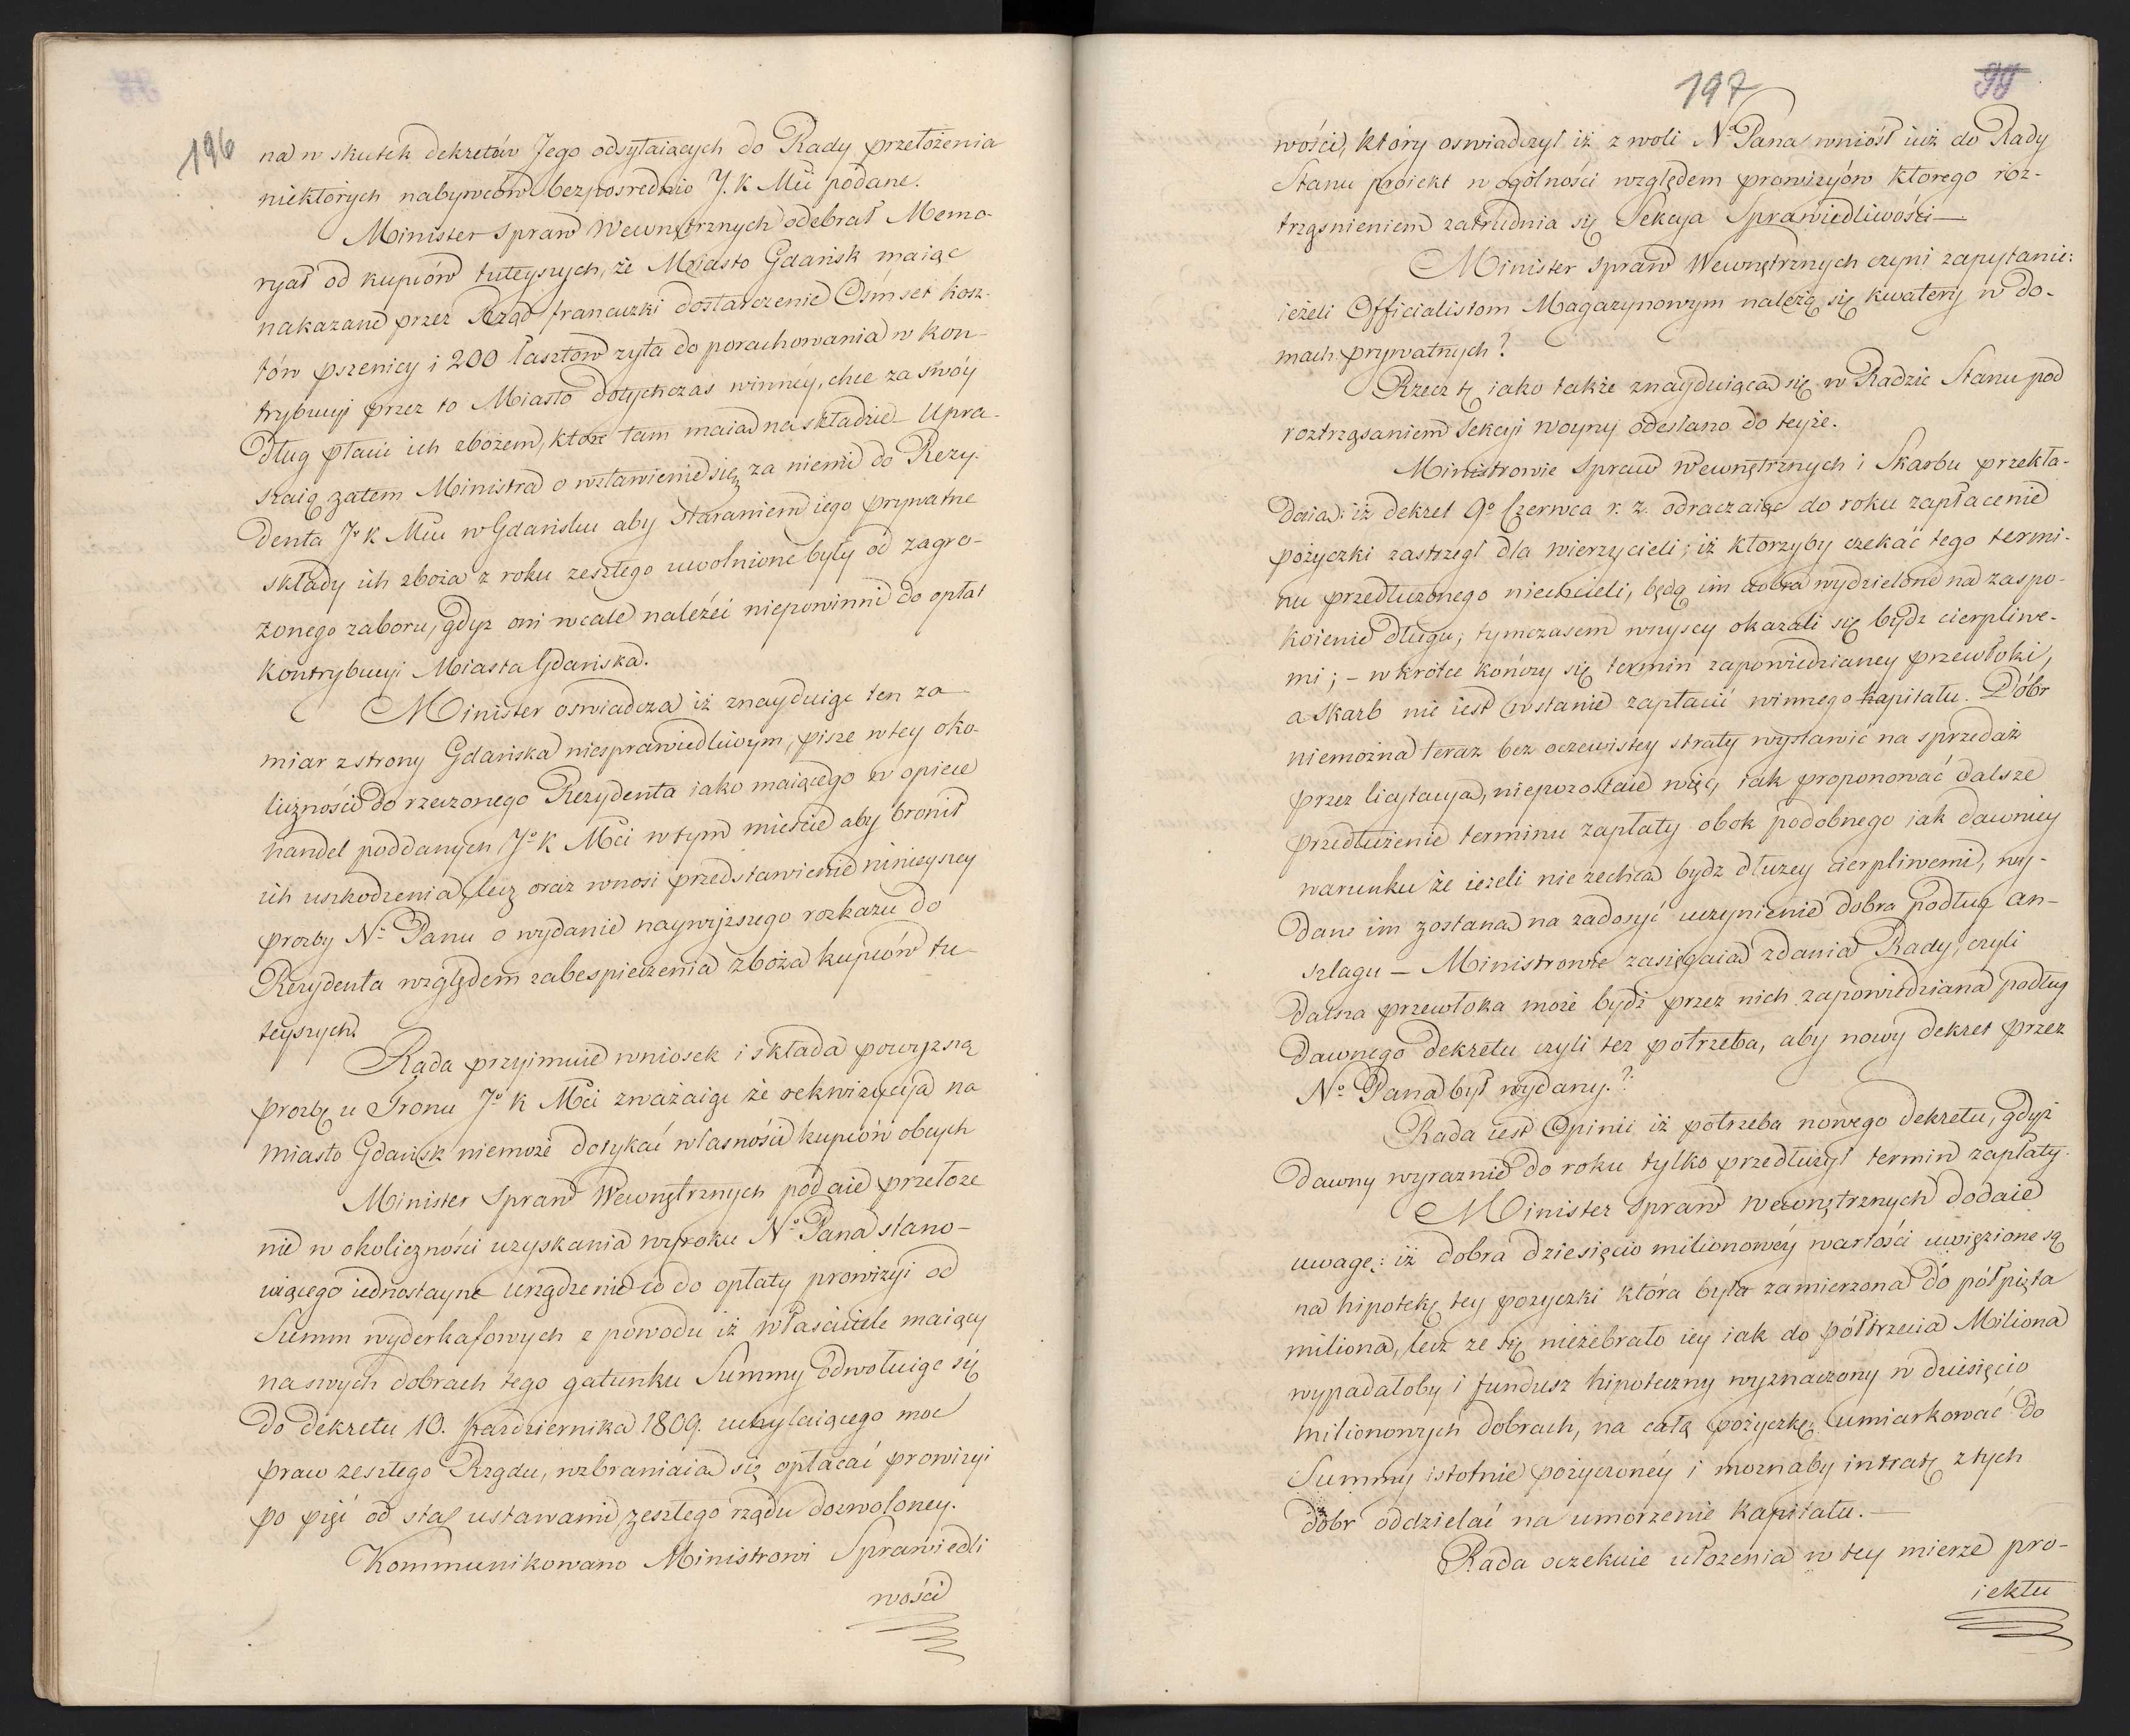 196
na w skutek dekretów Jego odsyłaiących do Rady przełożenia
niektórych nabywców bezpośrednio J. K Mci podane.
Minister Spraw Wewnętrznych odebrał Memo-
ryał od kupców tuteyszych, że Miasto Gdańsk maiąc
nakazane przez Rząd francuzki dostarczenie Ośmset kosz-
tów pszenicy i 200 łasztów żyta do porachowania w kon-
trybucyi przez to Miasto dotychczas winney, chce za swóy
dług płacić ich zbożem, które tam maią na składzie Upra-
szaią zatem Ministra o wstawienie się za niemi do Rezy-
denta Jº K Mci w Gdańsku aby staraniem iego prywatne
składy ich zboża z roku zeszłego uwolnione były od zagro-
żonego zaboru, gdyż oni wcale należeć niepowinni do opłat
kontrybucyi Miasta Gdańska.
Minister oświadcza iż znayduiąc ten za-
miar z strony Gdańska niesprawiedliwym, pisze w tey oko-
liczności do rzeczonego Rezydenta iako maiącego w opiece
handel poddanych Jº K Mci w tym mieście aby bronił
ich uszkodzenia, lecz oraz wnosi przedstawienie ninieyszey
prozby Nº Panu o wydanie naywyższego rozkazu do
Rezydenta względem zabespieczenia zboża kupców tu-
teyszych.
Rada przyimuie wniosek i składa powyższą
prozbę u Tronu Jº K Mci zważaiąc że rekwizycyia na
miasto Gdańsk niemoże dotykać własności kupców obcych
Minister Spraw Wewnętrznych podaie przełoże
nie w okoliczności uzyskania wyroku Nº Pana stano-
wiącego iednostayne urządzenie co do opłaty prowizyi od
Summ wyderkafowych z powodu iż właściciele maiący
na swych dobrach tego gatunku Summy odwołuiąc się
do dekretu 10. Października 1809. uchylaiącego moc
praw zeszłego Rządu, wzbraniaią się opłacać prowizyi
po pięć od sta ustawami zeszłego rządu dozwoloney.
Kommunikowano Ministrowi Sprawiedli
wości
197
99
wości, który oswiadczył iż z woli Nº Pana wniósł iuż do Rady
Stanu proiekt w ogólności względem prowizyiów którego roz-
trząsnieniem zatrudnia się Sekcya Sprawiedliwości—
Minister Spraw Wewnętrznych czyni zapytanie:
ieżeli Officialistom Magazynowym należą się kwatery w do-
mach prywatnych?
Rzecz tę iako także znayduiąca się w Radzie Stanu pod
roztrząsaniem Sekcyi woyny odesłano do teyże.
Ministrowie Spraw Wewnętrznych i Skarbu przekła-
daią: iż dekret 9º Czerwca r. z. odraczaiąc do roku zapłacenie
pożyczki zastrzegł dla wierzycieli; iż którzyby czekać tego termi-
nu przedłużonego niechcieli, będą im dobra wydzielone na zaspo-
koienie długu; tymczasem wszyscy okazali się bydz cierpliwe-
mi; - wkrótce kończy się termin zapowiedzianey przewłoki,
a Skarb nie iest wstanie zapłacić winnego kapitału. Dóbr
niemożna teraz bez oczewistey straty wystawić na sprzedaż
przez licytacyą, niepozostaie więc, iak proponować dalsze
przedłużenie terminu zapłaty obok podobnego iak dawniey
warunku że ieżeli nie zechcą bydz dłużey cierpliwemi, wy-
dane im zostaną na zadosyć uczynienie dobra podług an-
szlagu — Ministrowie zasięgaią zdania Rady, czyli
dalsza przewłoka może bydź przez nich zapowiedziana podług
dawnego dekretu czyli też potrzeba, aby nowy dekret przez
Nº Pana był wydany.?
Rada iest Opinii iż potrzeba nowego dekretu, gdyż
dawny wyraznie do roku tylko przedłużył termin zapłaty.
Minister Spraw Wewnętrznych dodaie
uwagę: iż dobra dziesięcio milionowéy wartości uwięzione są
na hipotekę tey pożyczki która była zamierzona do półpięta
miliona, lecz że się niezebrało iey iak do półtrzecia Miliona
wypadałoby i fundusz hipoteczny wyznaczony w dziesięcio
milionowych dobrach, na całą pożyczkę umiarkować do
Summy istotnie pożyczonéy i możnaby intratę z tych
dóbr oddzielać na umorzenie kapitału.—
Rada oczekuie ułożenia w tey mierze pro-
iektu